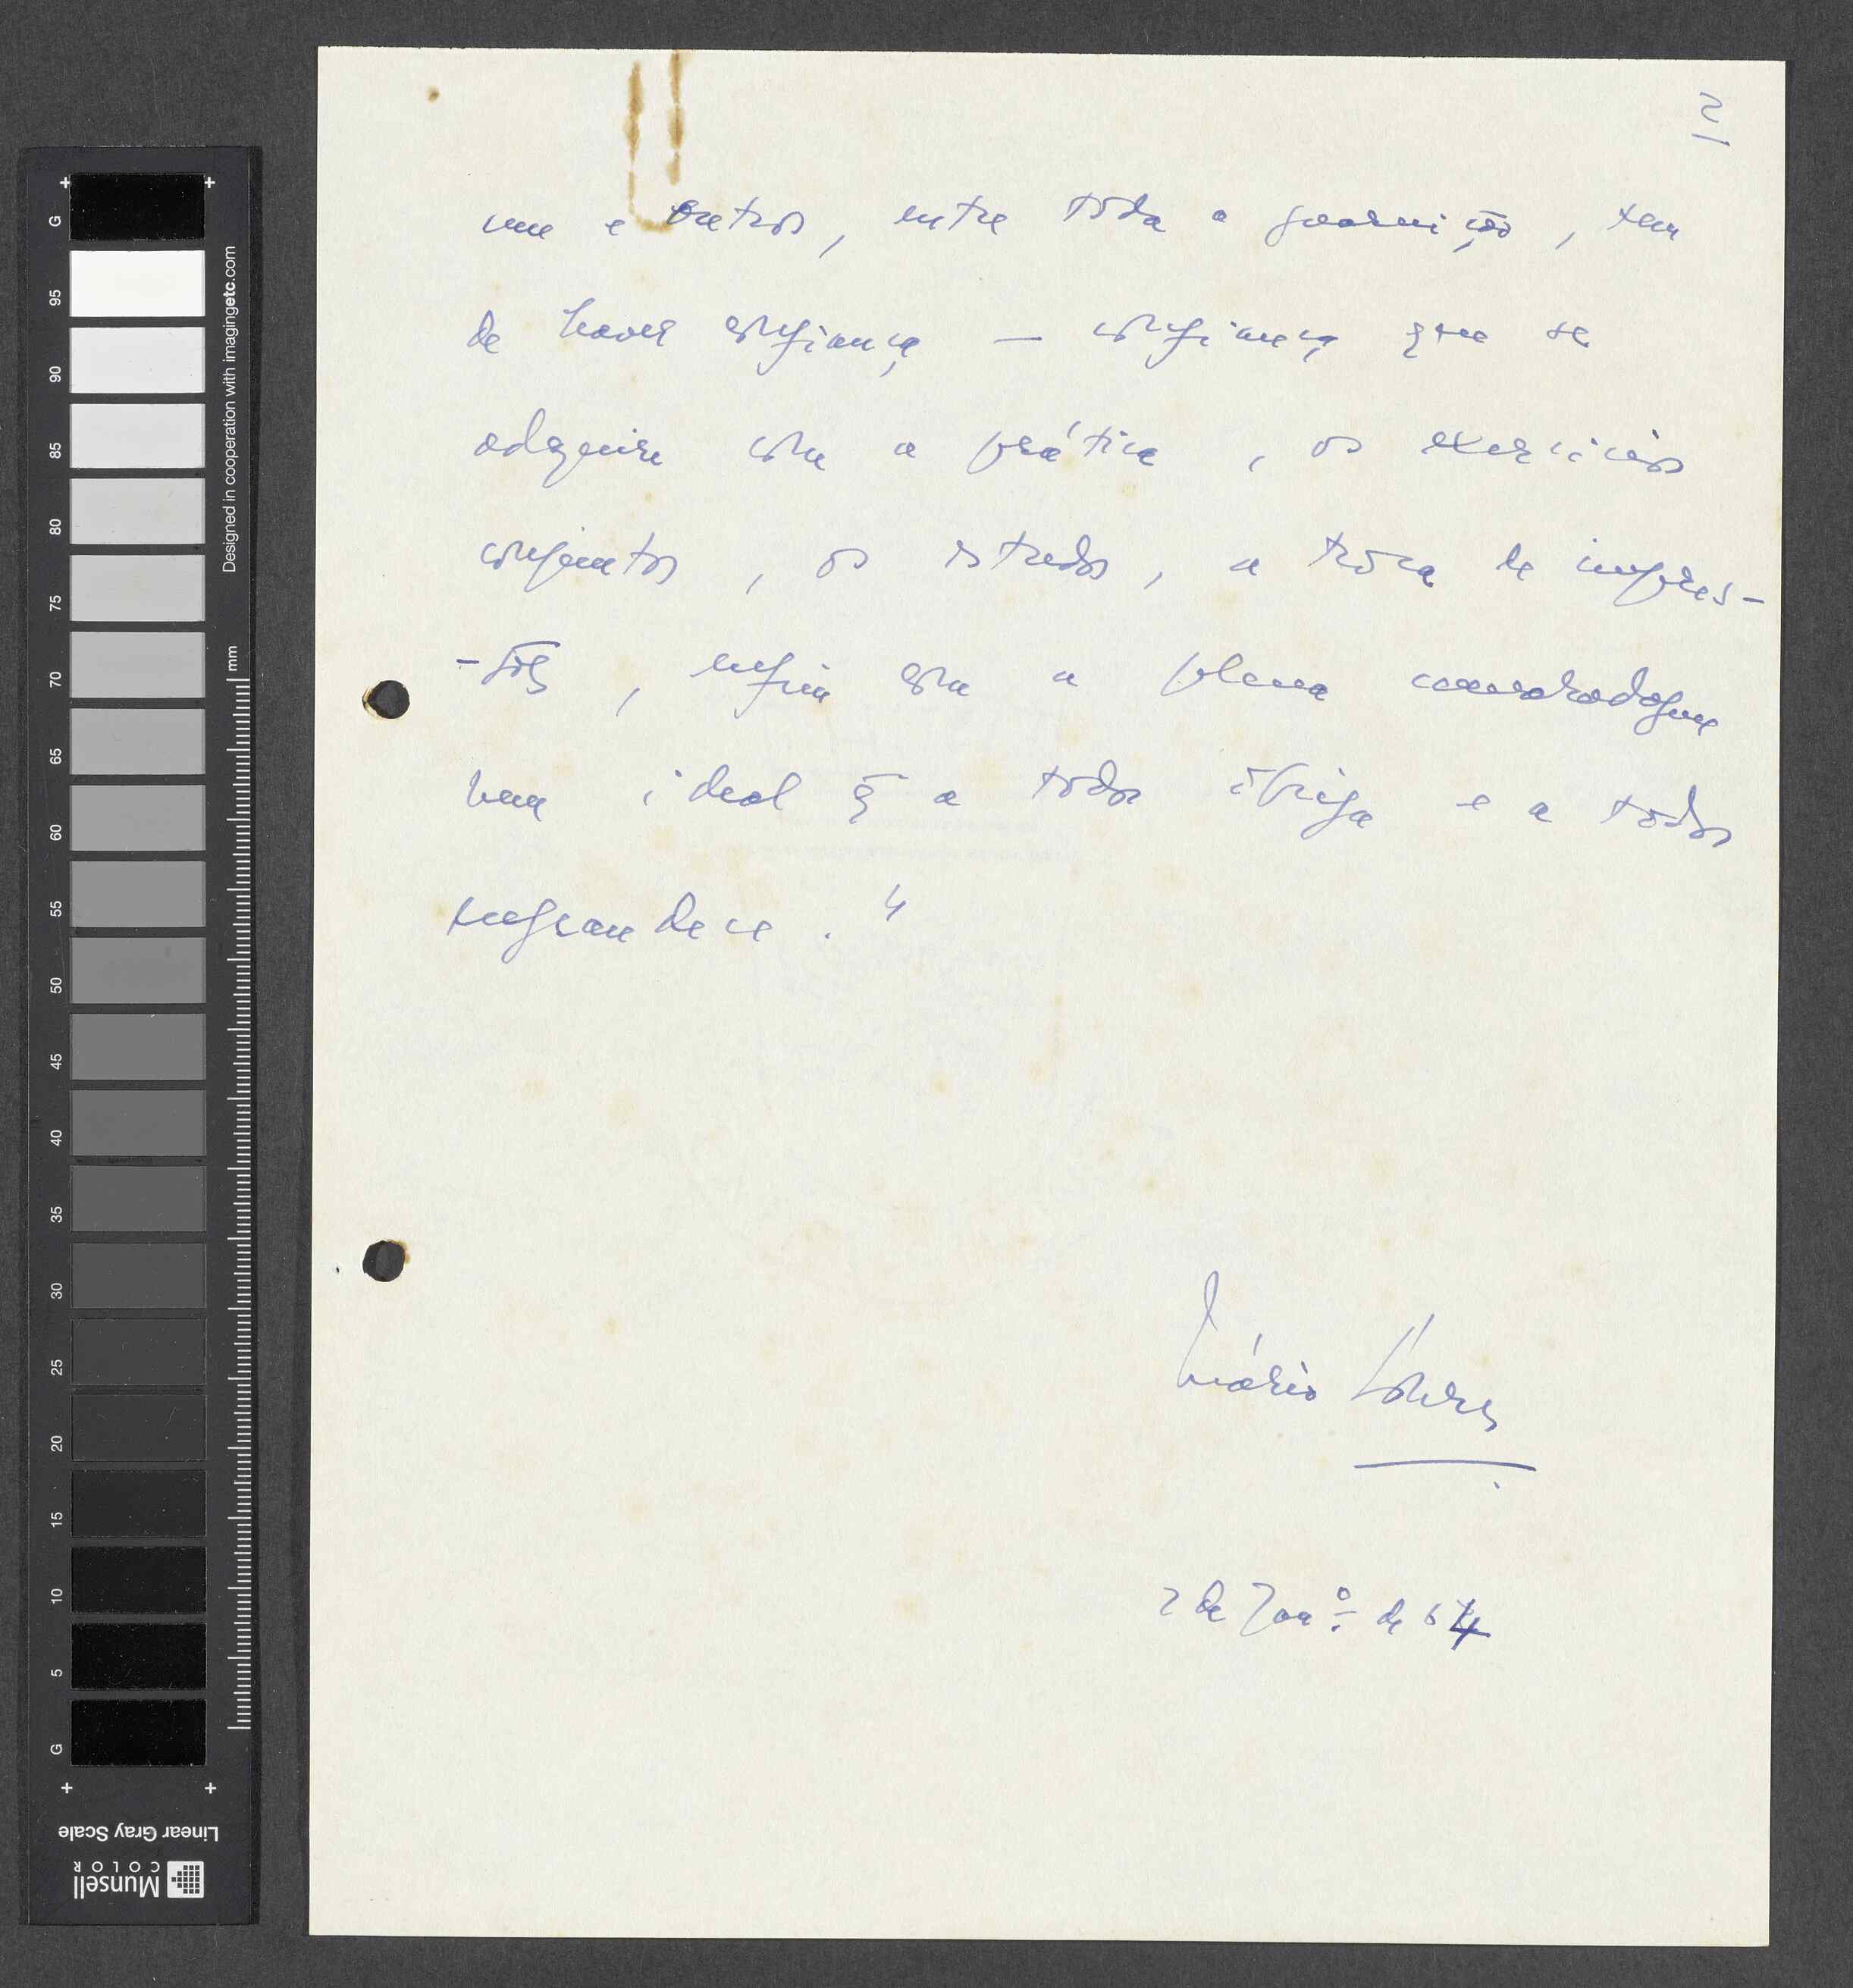 2
uns e outros, entre toda a guarnição, tem
de haver confiança — confiança que se
adquire com a prática, os exercícios
conjuntos, os estudos, a trôca de impres-
-sões, enfim com a plena camaradagem
num ideal q̃ a todos obriga e a todos
engrandece."
Mário
2 de Janº de 64
G
95
90
85
80
75
70
65
60
55
50
45
40
35
30
25
20
15
10
5
G
mm
Designed in cooperation with imagingetc.com
Linear Gray Scale
Munsell
COLOR